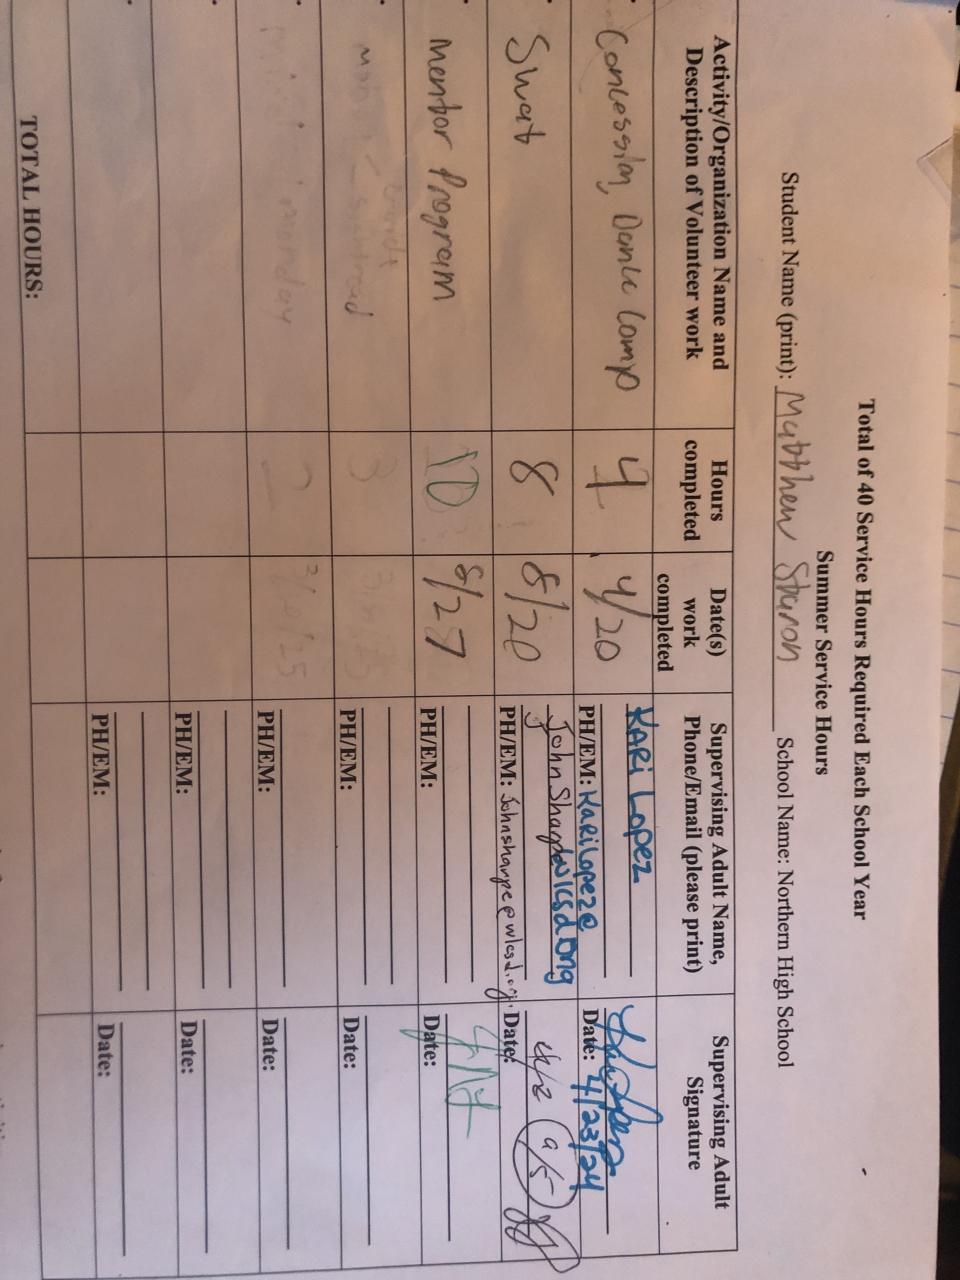 Total of 40 Service Hours Required Each School Year
Summer Service Hours
Student Name (print): Matthew Staron School Name: Northern High School
Activity/Organization Name and
Description of Volunteer work
Hours
completed
Date(s)
work
completed
Supervising Adult Name,
Phone/Email (please print)
Supervising Adult
Signature
Concession, Dance Comp
4
4/20
KARi Lopez
PH/EM: KariLopez@
wlcsd.org
Date: 4/23/24
Swat
8
8/20
John Sharpe
PH/EM: Johnsharpe@wlcsd.org.
Date:
9/5
Mentor Program
10
8/27
PH/EM:
Date:
3
PH/EM:
Date:
monday
2
PH/EM:
Date:
PH/EM:
Date:
PH/EM:
Date:
TOTAL HOURS: